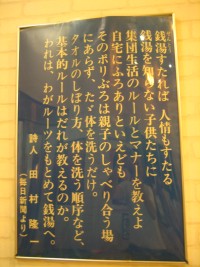 銭湯すたれば 人情もすたる
銭湯を知らない子供たちに
集団生活のルールとマナーを教えよ
自宅にふろありといえども
そのポリぶろは親子のしゃべり合う場
にあらず、たゞ体を洗うだけ。
タオルのしぼり方、体を洗う順序など、
基本的ルールはだれが教えるのか。
われは、わがルーツをもとめて銭湯へ。
詩人 田村隆一
(毎日新聞より)